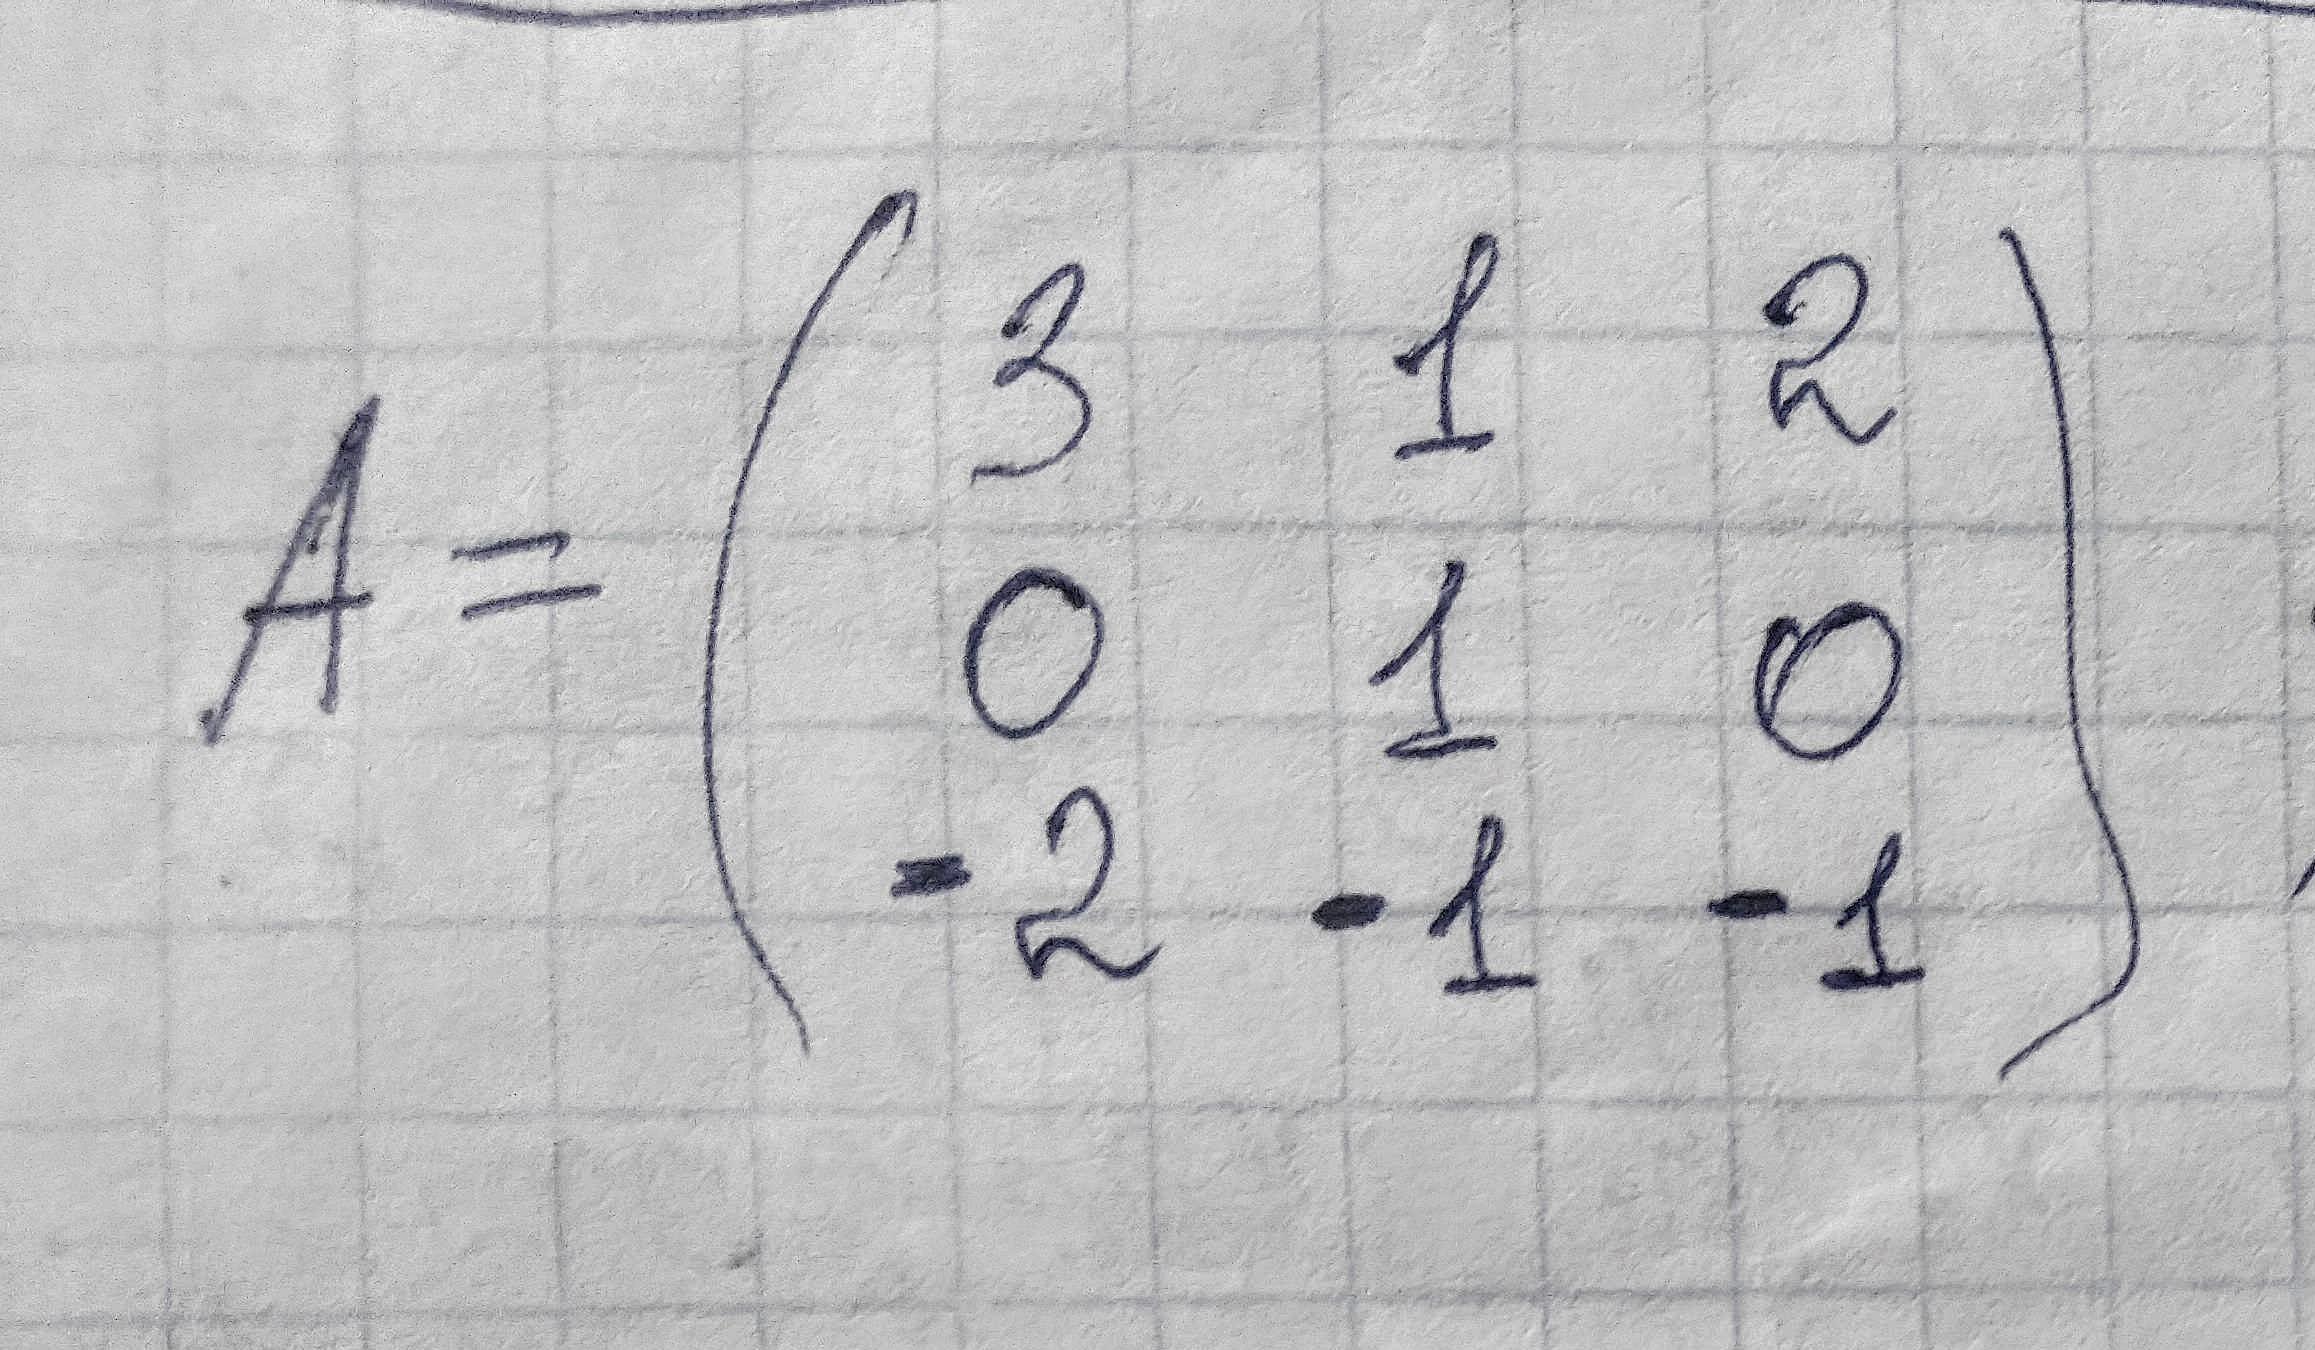 A = ( 3 1 2
0 1 0
-2 -1 -1 )